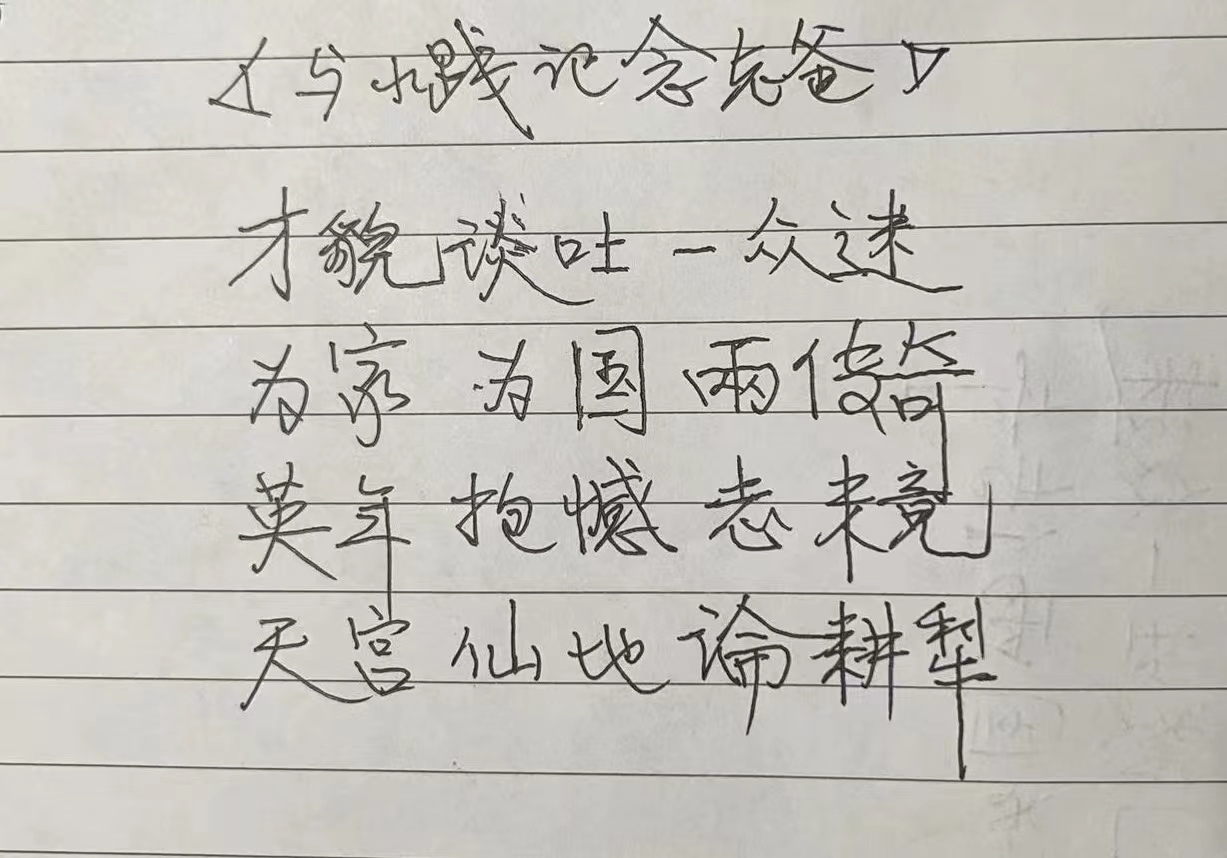 《与小践记念先爸》
才貌谈吐一众迷
为家为国两倚
英年抱憾志未竟
天宫仙地论耕犁